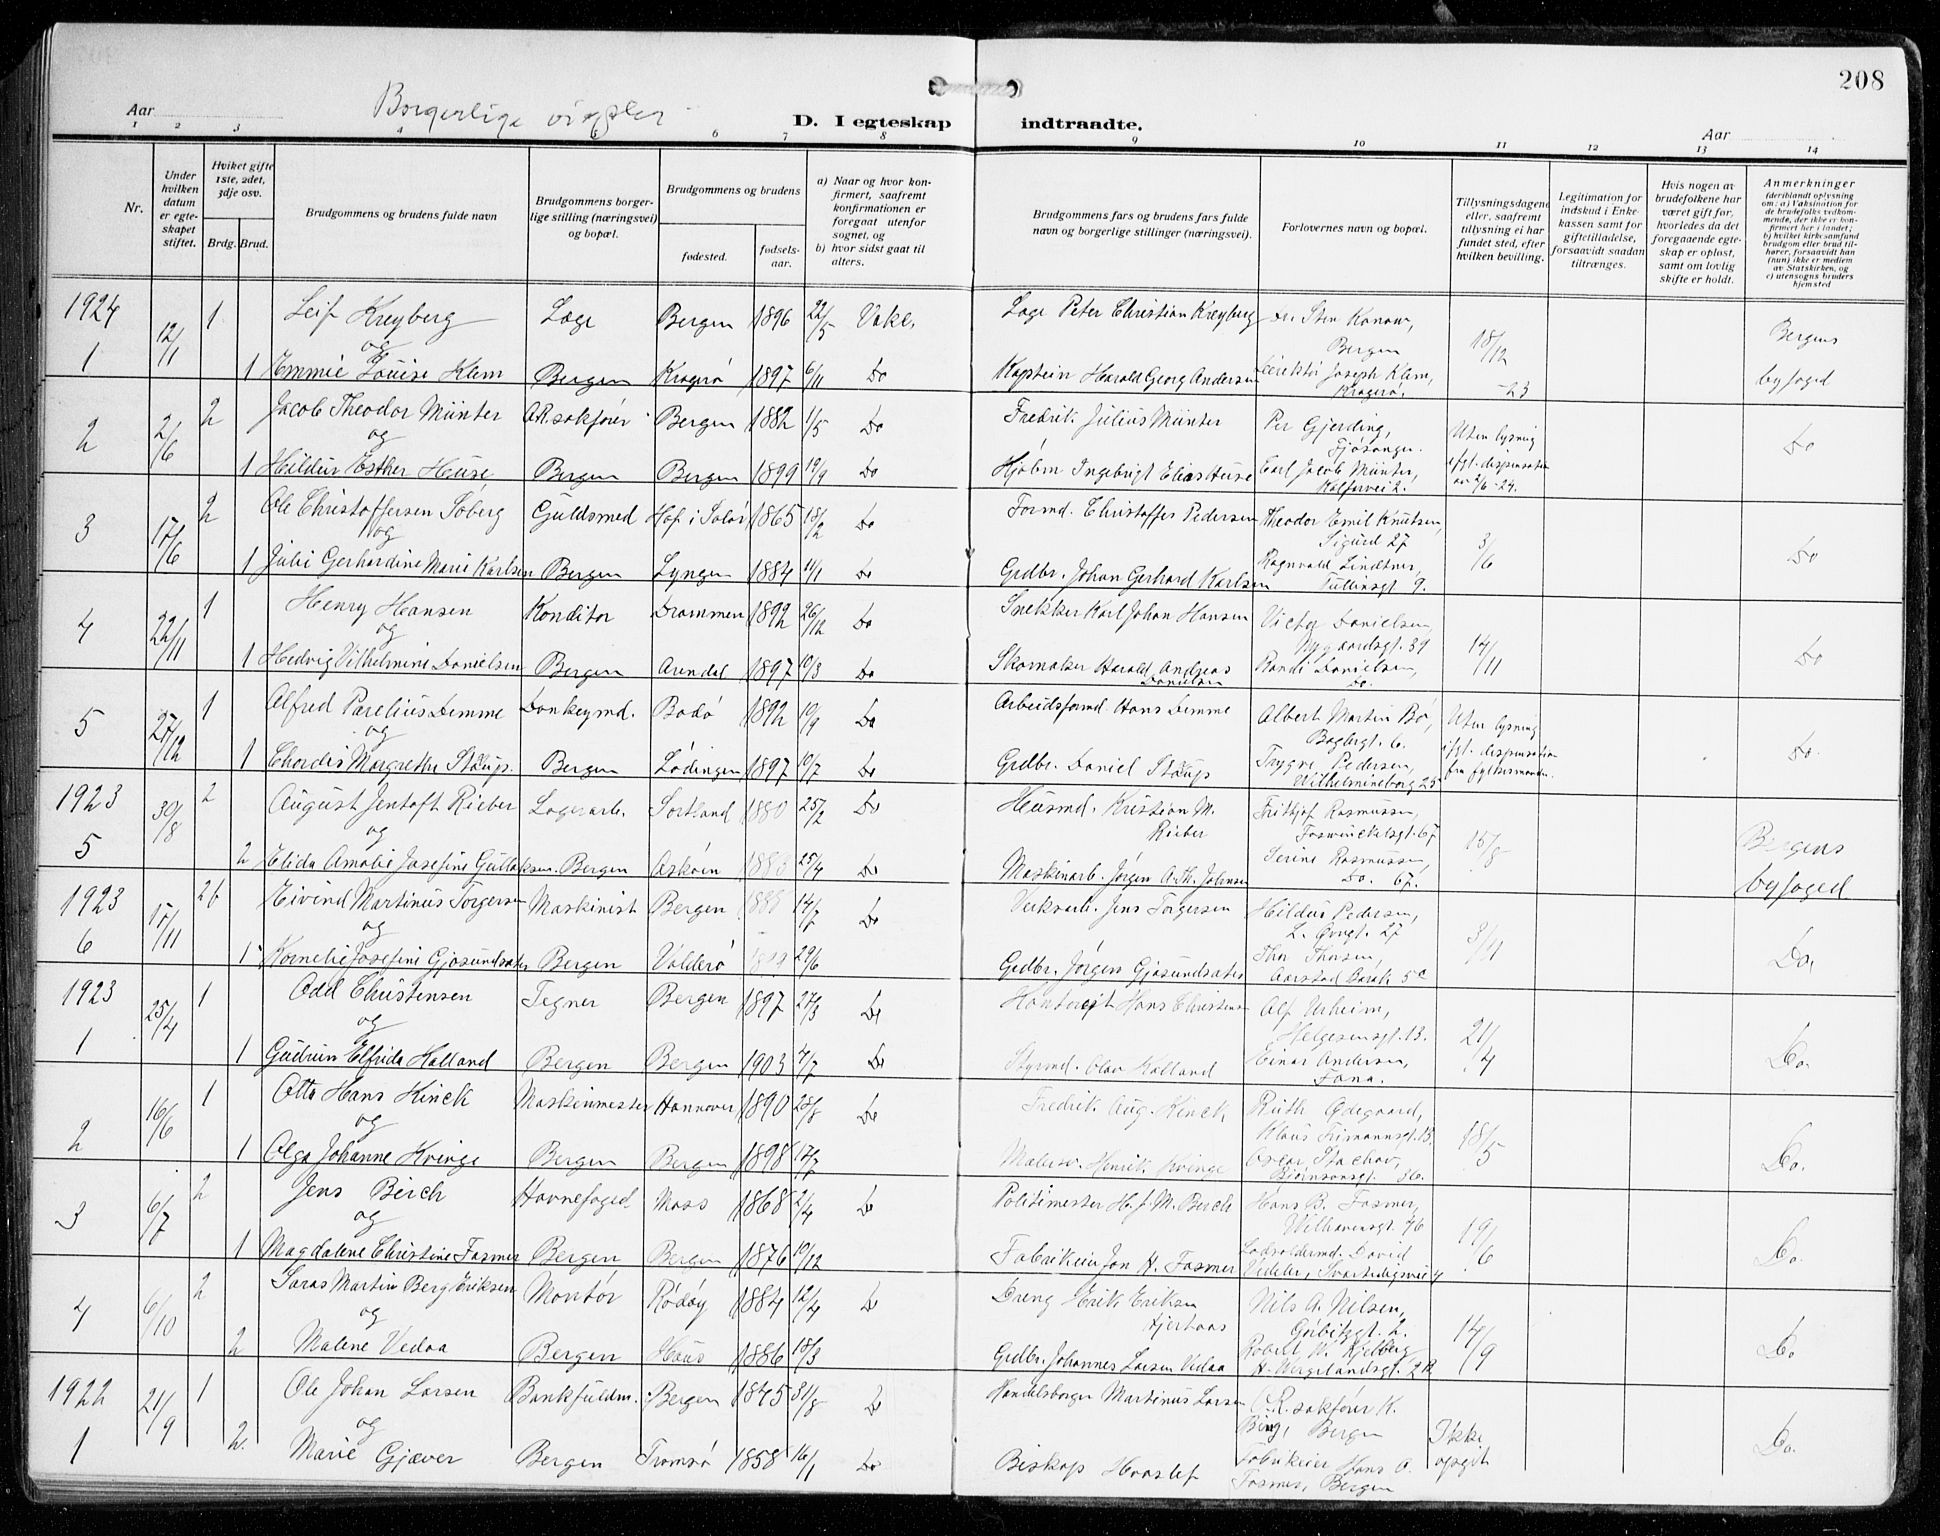 208
Borgerlige vigsler
Aar
D. I egteskap indtraadte.
Aar
1 2 3 4 5 6 7 8 9 10 11 12 13 14
Nr.
Under hvilken datum er egteskapet stiftet.
Hvilket gifte 1ste, 2det, 3dje osv.
Brdg. Brud.
Brudgommens og brudens fulde navn
Brudgommens borgerlige stilling (næringsvei) og bopæl.
Brudgommens og brudens
fødested.
fødselsaar.
a) Naar og hvor konfirmert, saafremt konfirmationen er foregaat utenfor sognet, og
b) hvor sidst gaat til alters.
Brudgommens fars og brudens fars fulde navn og borgerlige stillinger (næringsvei).
Forlovernes navn og bopæl.
Tillysningsdagene eller, saafremt tillysning ei har fundet sted, efter hvilken bevilling.
Legitimation for indskud i Enkekassen samt for giftetilladelse, forsaavidt saadan tiltrænges.
Hvis nogen av brudefolkene har været gift før, hvorledes da det foregaaende egteskap er opløst, samt om lovlig skifte er holdt.
Anmerkninger (deriblandt oplysning om: a) Vaksination for de brudefolks vedkommende, der ikke er konfirmert her i landet; b) hvilket kirkesamfund brudgom eller brud tilhører, forsaavidt han (hun) ikke er medlem av Statskirken, og c) utensogns bruders hjemsted
1924 12/11 1 Leif Kreyberg Læge Bergen 1896 22/5 Læge Peter Christian Kreyberg Dr. Sten Konow, Bergen 18/12 Bergens
1 og
1 Emmie Louise Klem Bergen Kragerø 1897 6/11 Do Kaptein Harald Georg Andersen Joseph Klem, Kragerø. -23 byfoged
2 2/6 2 Jacob Theodor Münter O.R.sakfører Bergen 1882 1/5 Do Fredrik Julius Münter Per Gjerding, Fjøsanger. Uten lysning Do
og
1 Hildur Esther Huse Bergen Bergen 1899 19/9 Do Ingebrigt Elias Huse Carl Jacob Münter, Kalfarvei 2. ifgt. dispensation av 2/6-24.
3 17/6 2 Ole Christoffersen Soberg Guldsmed Hof i Solør 1865 18/2 Do Formd. Christoffer Pedersen Theodor Emil Knutsen, Sigurd 27 3/6 Do
og
1 Juli Gerhardine Marie Karlsen Bergen Lyngen 1884 11/1 Do Grdbr. Johan Gerhard Karlsen Ragnvald Lindtner, Tullinsgt 9.
4 22/11 1 Henry Hansen Konditor Drammen 1892 26/12 Do Snekker Karl Johan Hansen Danielsen, Nygaardsgt. 31 14/11 Do
og
1 Hedvig Vilhelmine Danielsen Bergen Arendal 1897 19/3 Do Skomaker Harald Andreas Danielsen Randi Danielsen, Do.
5 27/12 1 Alfred Parelius Demme Donkeymd. Bodø 1892 19/9 Do Arbeidsformd. Hans Demme Albert Martin Bø, 6. Uten lysning Do.
og
1 Bergen Lødingen 1897 19/7 Do Grdbr. Daniel Trygve Pedersen, Wilhelmineborg 25 ifgt. dispensation fra fylkesmanden.
1923 30/8 2 August Jentoft Rieber Lagerarb. Sortland 1880 25/2 Do Husmd. Kristian M. Rieber Fritjof Rasmussen, 67 15/8 Bergens
5 og
2 Elida Amalie Josefine Gullaksen. Bergen Askøen 1883 25/4 Do Maskinarb. Jørgen A. Th. Johnsen Serine Rasmussen, Do. 67. byfoged
1923 15/11 2 Eivind Martinus Torgersen Maskinist Bergen 14/7 Do Verksarb. Jens Torgersen Pedersen, L. Øvregt. 27 3/11 Do.
6 og
1 Kornelie Josefine Gjøsundsæter Bergen Valderø 29/6 Grdbr. Jørgen Gjøsundsæter Thor Thorsen, Aarstad Barak 5c
1923 25/4 1 Odd Christensen Tegner Bergen 1897 27/3 Do Hans Christensen Alf Urheim, Helgesensgt. 13. 21/4 Do.
1 og
1 Gudrun Elfrida Halland Bergen Bergen 1903 4/7 Do Styrmd. Olav Halland Einar Andersen, Fana.
2 16/6 1 Otto Hans Kinck Maskinmester Hannover 1890 28/8 Do Fredrik Aug. Kinck Ruth Ødegaard, Klaus Frimannsgt. 13. 18/5 Do.
og
1 Olga Johanne Kvinge Bergen Bergen 1898 17/7 Henrik Kvinge Oscar Stachov, Bjørnsonsgt. 36.
3 6/7 2 Jens Berch Havnefoged Moss 1868 2/4 Do Politimester H. J. M. Berch Hans B. Fasmer, Wilhavensgt. 46 19/6 Do.
og
1 Magdalene Christine Fasmer Bergen Bergen 1876 19/12 Fabrikeier Jan H. Fasmer David Vedeler, Svartedigsvei 4
4 6/10 2 Martin Berg Eriksen Montør Rødøy 1884 12/4 Do Dreng Erik Eriksen Hjerthaas Nils A. Nilsen, 2. 14/9 Do
og
2 Malene Vedaa Bergen Haus 1886 18/3 Grdbr. Johannes Larsen Vedaa Robert W. Kjelberg H. Wergelandsgt. 2
1922 21/9 1 Ole Johan Larsen Bankfuldm. Bergen 1845 31/8 Do Handelsborger Martinus Larsen O.R. sakfører K. Bing, Bergen Ikke opgit Do.
1 og
2. Marie Gjæver Bergen Tromsø 1858 16/1 Do Biskop Hvoslef Fabrikeier Hans A. Fasmer, Bergen